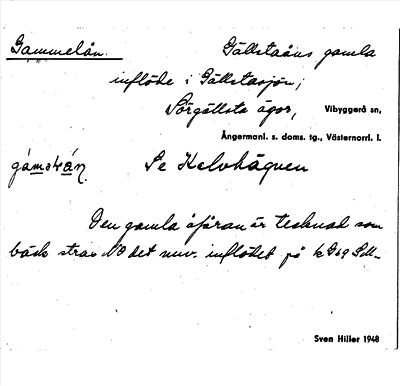 Gammelån. Gällstaåns gamla
inflöde i Gällstasjön;
Sörgällsta ägor, Vibyggerå sn,
Ångermanl. s. doms. tg., Västernorrl. l.
Se Kalvhägnen
Den gamla åfåran är tecknad som
bäck strax NO det nuv. inflödet på k G69
Sven Hiller 1948